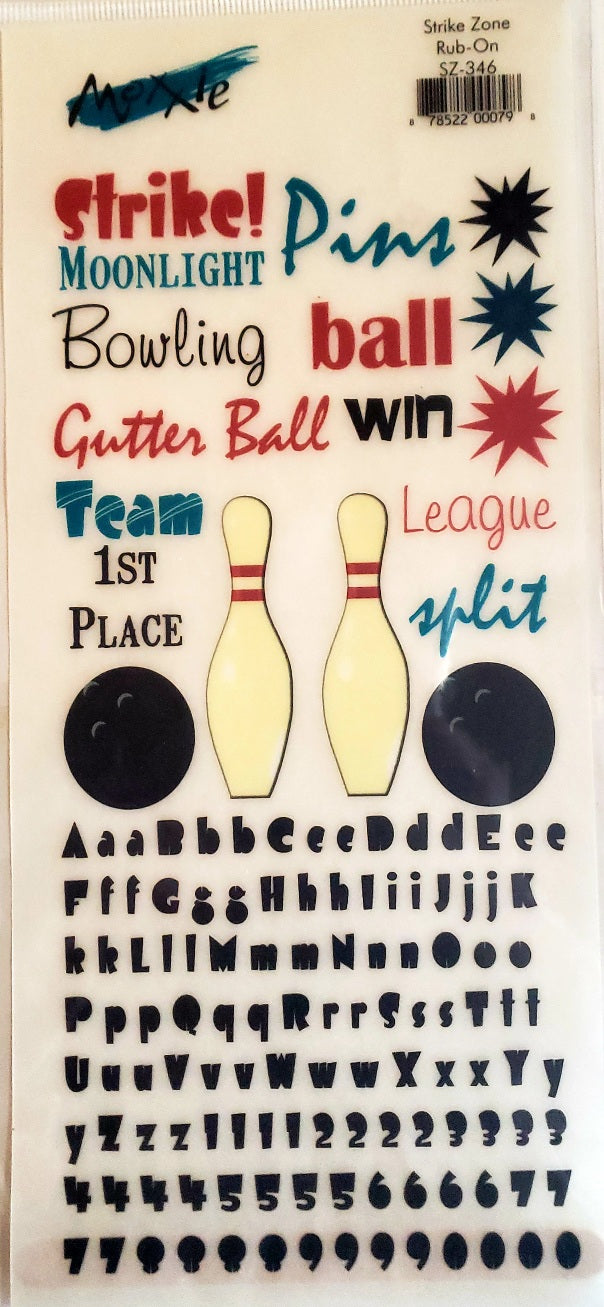 Moxie
Strike Zone
Rub-On
SZ-346
8 78522 00079 8
Strike! Pins
MOONLIGHT
Bowling ball
Gutter Ball win
Team League
1ST
PLACE split
A a a B b b C c c D d d E e e
F f f G g g H h h I i i J j j K
k k L l l M m m N n n O o o
P p p Q q q R r r S s s T t t
U u u V v v W w w X x x Y y
y Z z z 1 1 1 1 2 2 2 2 3 3 3 3
4 4 4 4 5 5 5 5 6 6 6 6 7 7
7 7 8 8 8 8 9 9 9 9 0 0 0 0